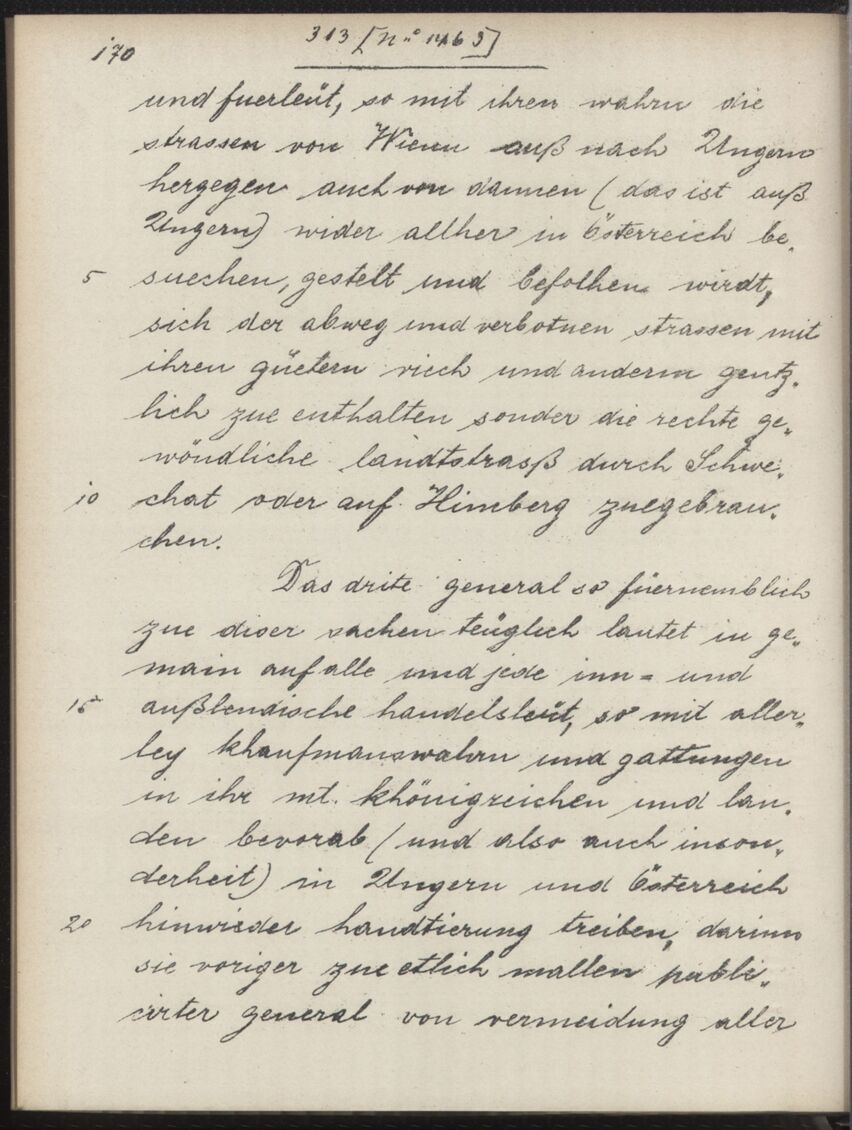 170
313 [N.° 1463]
und fuerleüt, so mit ihren wahrn die
strassen von Wienn auß nach Ungern
hergegen auch von dannen (das ist auß
Ungern) wider allher in Österreich be„
5 suechen, gestelt und befolhen wirdt,
sich der abweg und verbotnen strassen mit
ihren güetern viech und anderm gentz„
lich zue enthalten sonder die rechte ge„
wöndliche landtstrasß durch Schwe„
10 chat oder auf Himberg zuegebrau„
chen.
Das drite general so füernemblich
zue diser sachen teüglich lautet in ge„
main auf alle und jede inn= und
15 außlendische handelsleüt, so mit aller„
ley khaufmanswahrn und gattungen
in ihr mt. khönigreichen und lan„
den bevorab (und also auch inson„
derheit) in Ungern und Österreich
20 hinwieder handtierung treiben, darinn
sie voriger zue etlich mallen publi„
cirter general von vermeidung aller